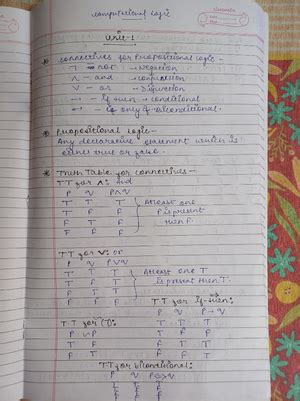 computational logic
Unit-1
Connectives for Propositional logic -
¬ - not → Negation
∧ - and → conjunction
∨ - or → Disjunction
→ - if then → conditional
↔ - if only if → biconditional.
Propositional logic -
Any declarative statement which is
either true or false.
Truth Table for connectives -
TT for ∧: and
P q P∧q
T T T
T F F
F T F
F F F
Atleast one
F is present
then F.
TT for ∨: or
P q P∨q
T T T
T F T
F T T
F F F
Atleast one T
is present then T.
TT for if-then:
P q P→q
T T T
T F F
F T T
F F T
TT for (¬):
P ¬P
T F
F T
TT for biconditional:
P q P↔q